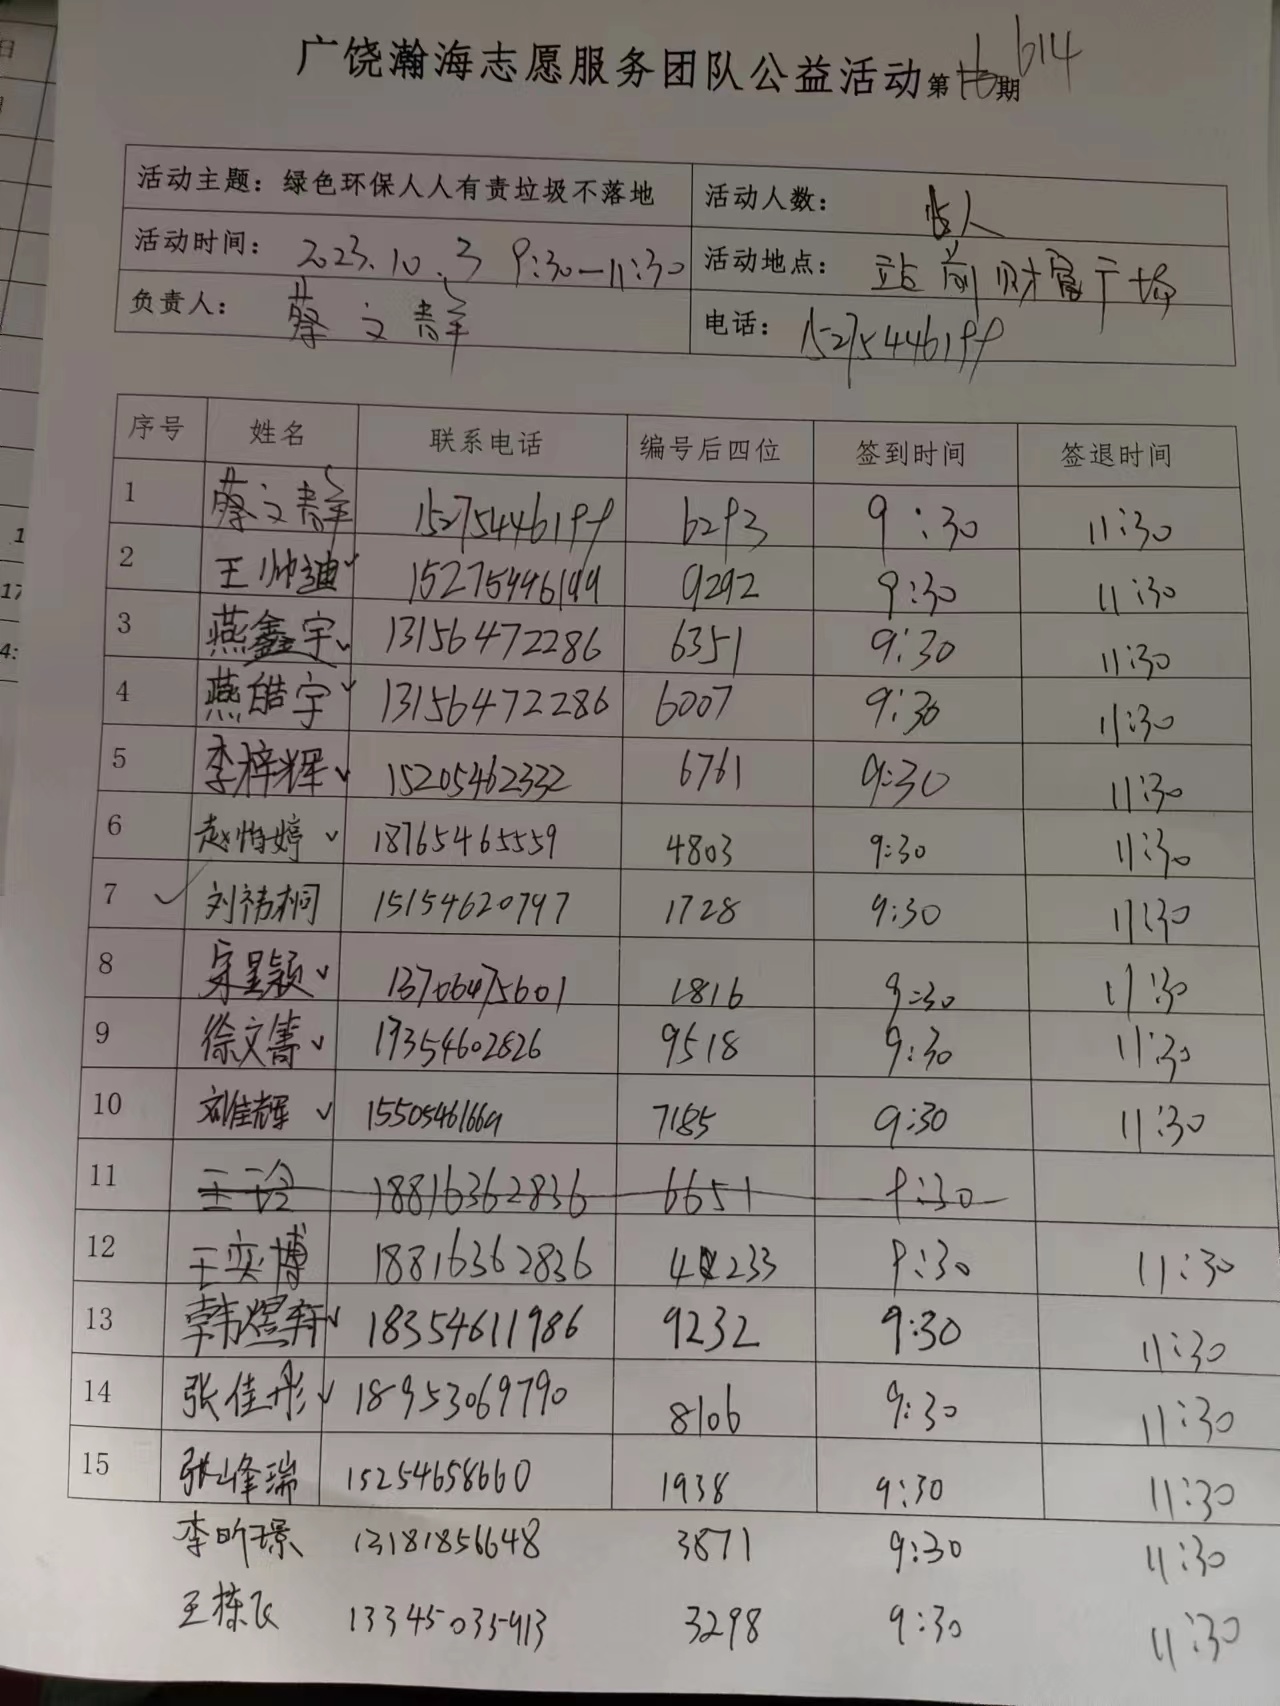 广饶瀚海志愿服务团队公益活动第 期 614
活动主题：绿色环保人人有责垃圾不落地 活动人数： 人
活动时间：2023.10.3 9:30—11:30 活动地点：站前财富广场
负责人：蔡文群 电话：15275446199
序号 姓名 联系电话 编号后四位 签到时间 签退时间
1 蔡文群 15275446199 6293 9:30 11:30
2 王帅迪 15275446199 9292 9:30 11:30
3 燕鑫宇 13156472286 6351 9:30 11:30
4 燕皓宇 13156472286 6007 9:30 11:30
5 李梓辉 15205462332 6761 9:30 11:30
6 赵怡婷 18765465559 4803 9:30 11:30
7 刘祎桐 15154620797 1728 9:30 11:30
8 宋星颖 13706475601 1816 9:30 11:30
9 徐文菁 19354602826 9518 9:30 11:30
10 刘佳辉 15505461669 7185 9:30 11:30
11 王 18816362836 6651 9:30
12 王奕博 18816362836 4233 9:30 11:30
13 韩煜轩 18354611986 9232 9:30 11:30
14 张佳彤 18953069790 8106 9:30 11:30
15 张峰瑞 15254658660 1938 9:30 11:30
李昕璟 13181856648 3871 9:30 11:30
王栋飞 13345035913 3298 9:30 11:30